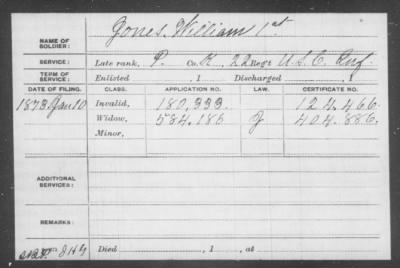 NAME OF SOLDIER: Jones, William 1st
SERVICE: Late rank, P. Co. K, 22 Reg't U.S.C. Inf.
TERM OF SERVICE: Enlisted , 1 Discharged , 1
DATE OF FILING. CLASS. APPLICATION NO. LAW. CERTIFICATE NO.
1873 Jan. 10 Invalid, 180,333. 124.466
Widow, 584.186 G 404.886.
Minor,
ADDITIONAL SERVICES:
REMARKS:
Died , 1 , at